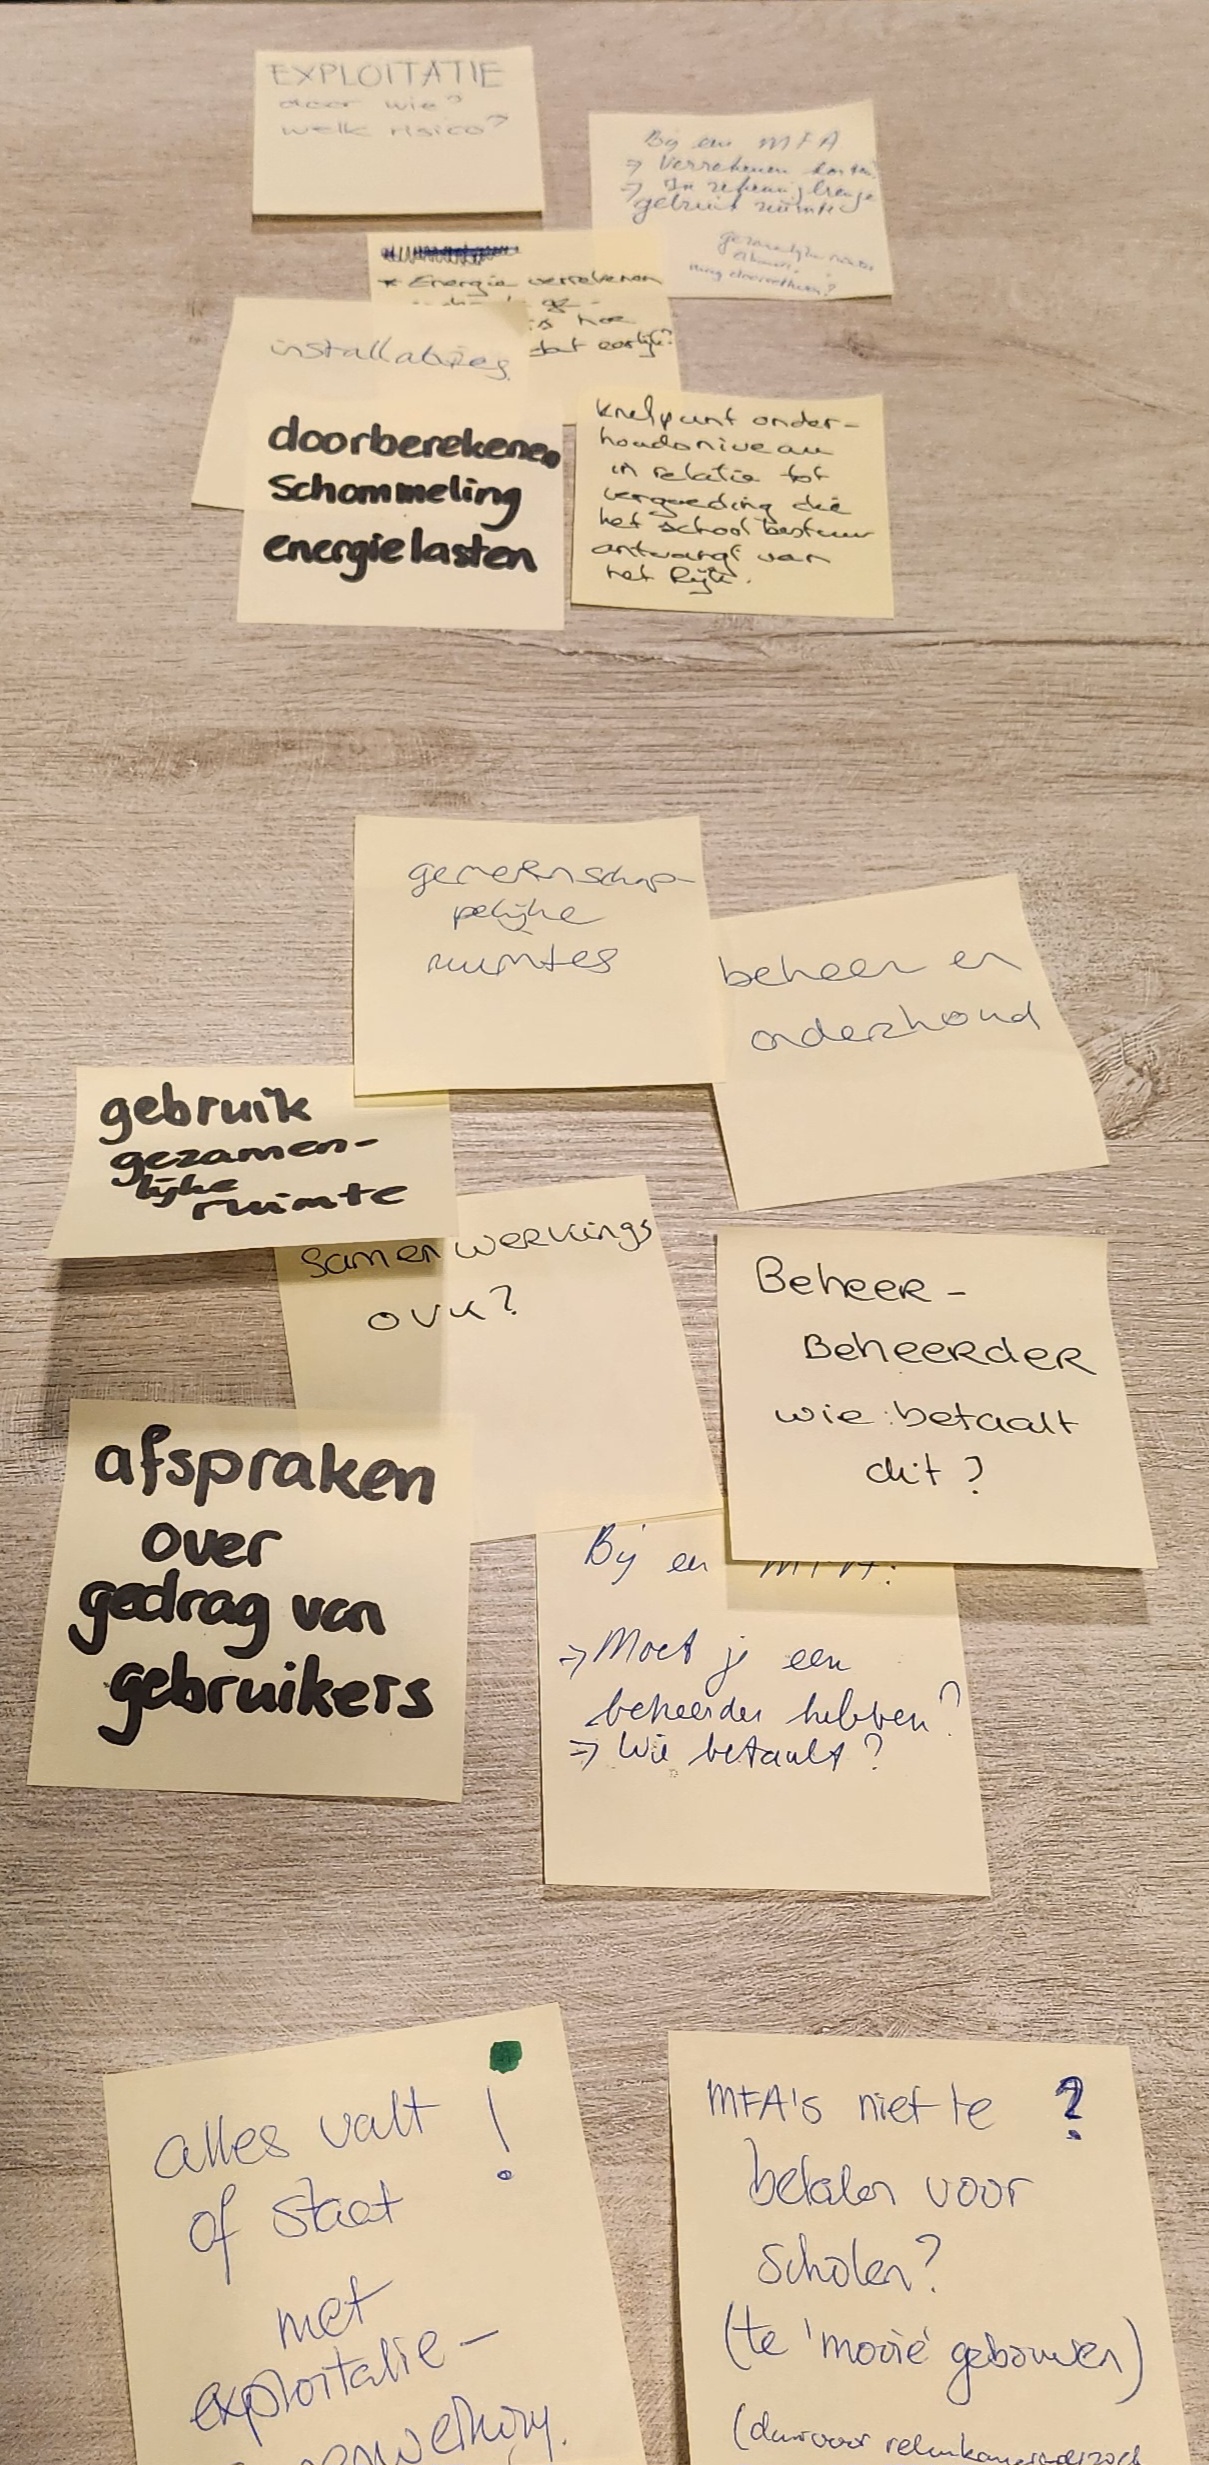 EXPLOITATIE
door wie?
welk risico?
Bij een MFA
→ Verrekenen
→ In rekening brengen
gebruik ruimtes
gezamenlijke ruimtes
* Energie verrekenen
ge-
is hoe
dat eerlijk?
installaties
doorberekenen
schommeling
energielasten
knelpunt onder-
houdsniveau
in relatie tot
vergoeding die
het schoolbestuur
ontvangt van
het Rijk.
gemeenschap-
pelijke
ruimtes
beheer en
onderhoud
gebruik
gezamen-
lijke
ruimte
samenwerkings
ovk?
Beheer -
Beheerder
wie betaalt
dit?
afspraken
over
gedrag van
gebruikers
Bij een MFA:
⇒ Moet je een
beheerder hebben?
⇒ Wie betaalt?
alles valt !
of staat
met
exploitatie-
MFA's niet te ?
betalen voor
scholen?
(te 'mooie' gebouwen)
(daarvoor